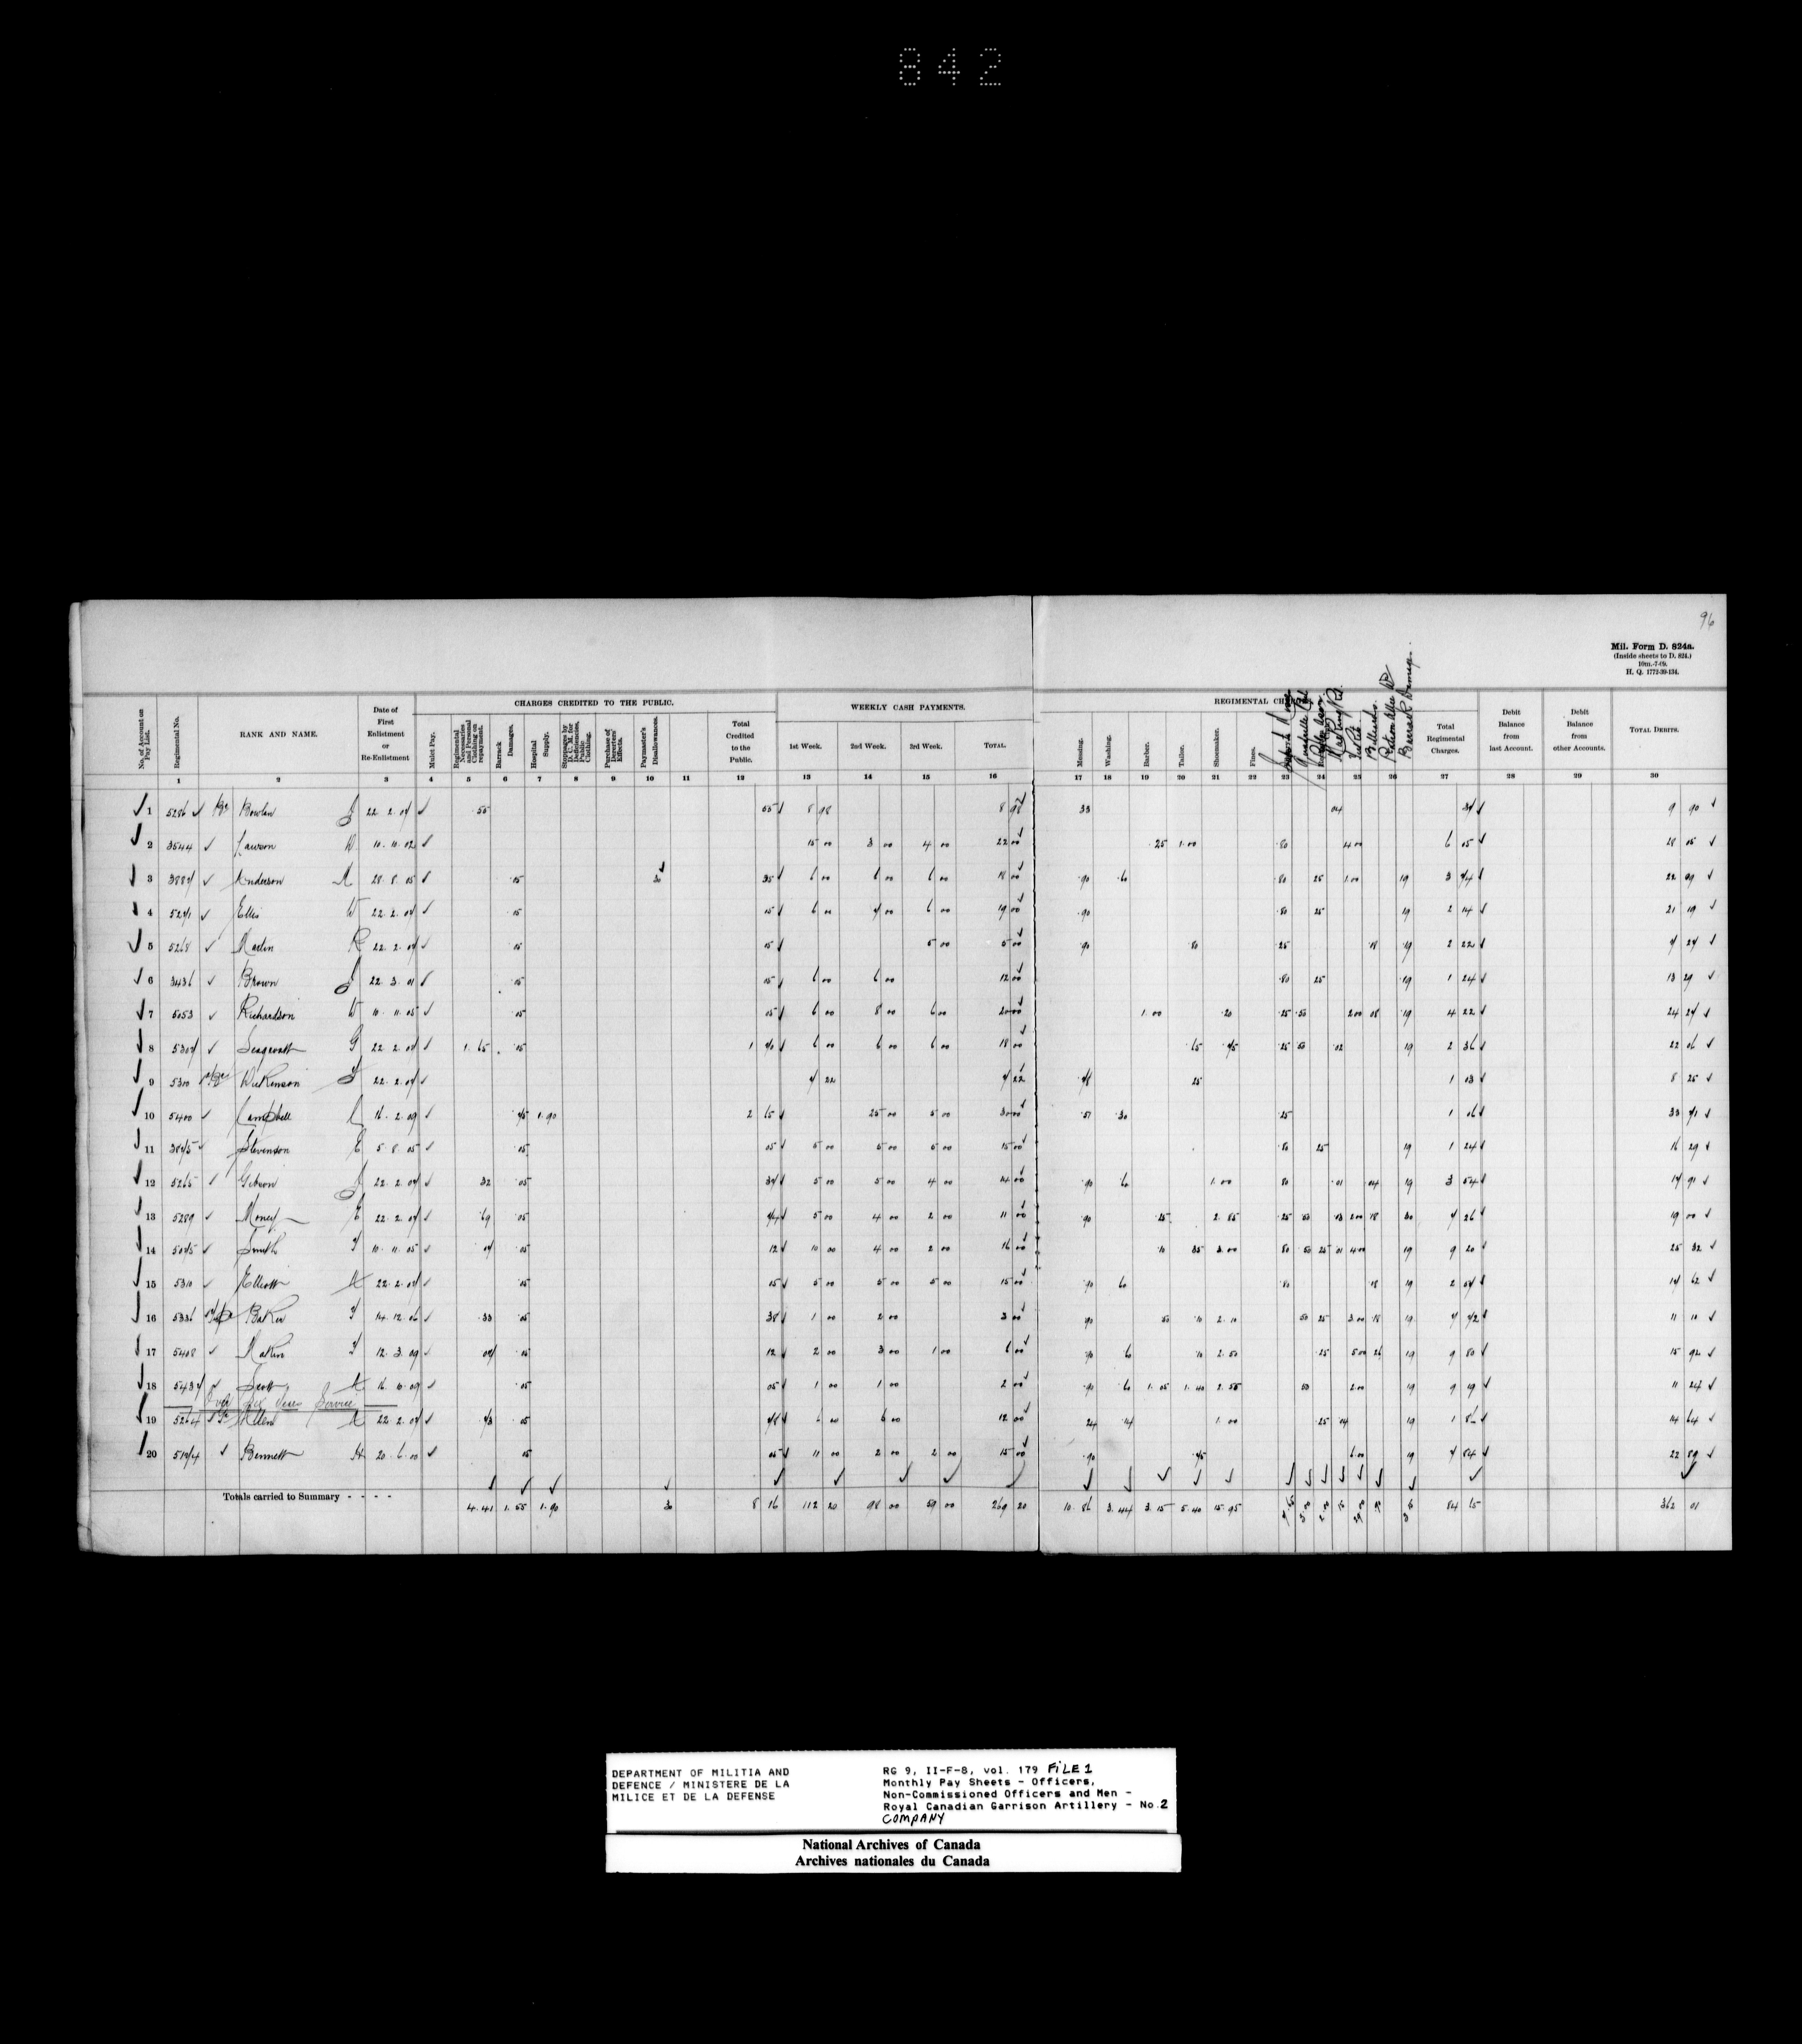 842
96
Mil. Form D. 824a.
(Inside sheets to D. 824.)
10m.-7-09.
H. Q. 1772-39-134.
CHARGES CREDITED TO THE PUBLIC.
WEEKLY CASH PAYMENTS.
REGIMENTAL
No. of Account on Pay List.
Regimental No.
RANK AND NAME.
Date of First Enlistment or Re-Enlistment
Mulct Pay.
Regimental Necessaries and Personal Clothing on repayment.
Barrack Damages.
Hospital Supply.
Stoppages by D. U. M. for Deficiencies, Public Clothing.
Purchase of Deserters' Effects.
Paymaster's Disallowances.
Total Credited to the Public.
1st Week.
2nd Week.
3rd Week.
TOTAL.
Messing.
Washing.
Barber.
Tailor.
Shoemaker.
Fines.
Billiards.
Barrack Damage.
Total Regimental Charges.
Debit Balance from last Account.
Debit Balance from other Accounts.
TOTAL DEBITS.
1 2 3 4 5 6 7 8 9 10 11 12 13 14 15 16 17 18 19 20 21 22 23 24 25 26 27 28 29 30
1 5286 Br Bowlan J 22. 2. 07 55 55 8 98 8 98 33 04 37 9 90
2 3544 Lawson W 10. 11. 02 15 00 3 00 4 00 22 00 25 1.00 80 4.00 6 05 28 05
3 3887 Anderson A 28. 8. 05 .05 30 35 6 00 6 00 6 00 18 00 .90 .60 .80 25 1.00 19 3 74 22 09
4 5271 Ellis W 22. 2. 07 .05 05 6 00 7 00 6 00 19 00 .90 .80 25 19 2 14 21 19
5 5268 Martin R 22. 2. 07 .05 05 5 00 5 00 .90 .80 .25 .08 .19 2 22 7 27
6 3436 Brown J 22. 3. 01 .05 05 6 00 6 00 12 00 .80 25 .19 1 24 13 29
7 5053 Richardson W 10. 11. 05 .05 05 6 00 8 00 6 00 20 00 1.00 .20 .25 .50 2.00 08 .19 4 22 24 27
8 5307 Seagroatt G 22. 2. 07 1.65 .05 1 70 6 00 6 00 6 00 18 00 .65 .45 .25 50 .02 19 2 36 22 06
9 5300 Wilkinson J 22. 2. 07 7 22 7 22 .78 25 1 03 8 25
10 5400 Campbell C 16. 2. 09 .75 1.90 2 65 25 00 5 00 30 00 .51 .30 .25 1 06 33 71
11 3875 Stevenson E 5. 8. 05 .05 05 5 00 5 00 5 00 15 00 .80 25 19 1 24 16 29
12 5265 Gibson J 22. 2. 07 32 .05 37 5 00 5 00 4 00 14 00 .90 60 1.00 80 .01 .04 19 3 54 17 91
13 5289 Money E 22. 2. 07 .69 .05 74 5 00 4 00 2 00 11 00 .90 .25 2.85 .25 50 .03 2.00 18 30 7 26 19 00
14 5075 Smith J 10. 11. 05 07 .05 12 10 00 4 00 2 00 16 00 .10 35 3.00 80 50 25 01 4.00 19 9 20 25 32
15 5310 Elliott A 22. 2. 07 .05 05 5 00 5 00 5 00 15 00 .90 60 .80 .08 19 2 57 17 62
16 5336 Baker J 14. 12. 06 .33 .05 38 1 00 2 00 3 00 90 50 .10 2.10 50 25 3.00 18 19 7 72 11 10
17 5408 Makin J 12. 3. 09 07 .05 12 2 00 3 00 1 00 6 00 .90 .60 .10 2.50 .25 5.00 26 19 9 80 15 92
18 5437 Scott A 16. 6. 09 .05 05 1 00 1 00 2 00 .90 .60 1.05 1.40 2.55 50 2.00 19 9 19 11 24
Over Six Years Service
19 5264 Allen A 22. 2. 07 .73 .05 78 6 00 6 00 12 00 24 .14 1.00 25 04 19 1 86 14 64
20 5174 Bennett H 20. 6. 00 05 05 11 00 2 00 2 00 15 00 .90 .45 6.00 19 7 54 22 59
Totals carried to Summary - - - - 4.41 1.55 1.90 30 8 16 112 20 98 00 59 00 269 20 10.86 3.44 3.15 5.40 15.95 84 65 362 01
DEPARTMENT OF MILITIA AND
DEFENCE / MINISTERE DE LA
MILICE ET DE LA DEFENSE
RG 9, II-F-8, vol. 179 FILE 1
Monthly Pay Sheets - Officers,
Non-Commissioned Officers and Men -
Royal Canadian Garrison Artillery - No.2
COMPANY
National Archives of Canada
Archives nationales du Canada